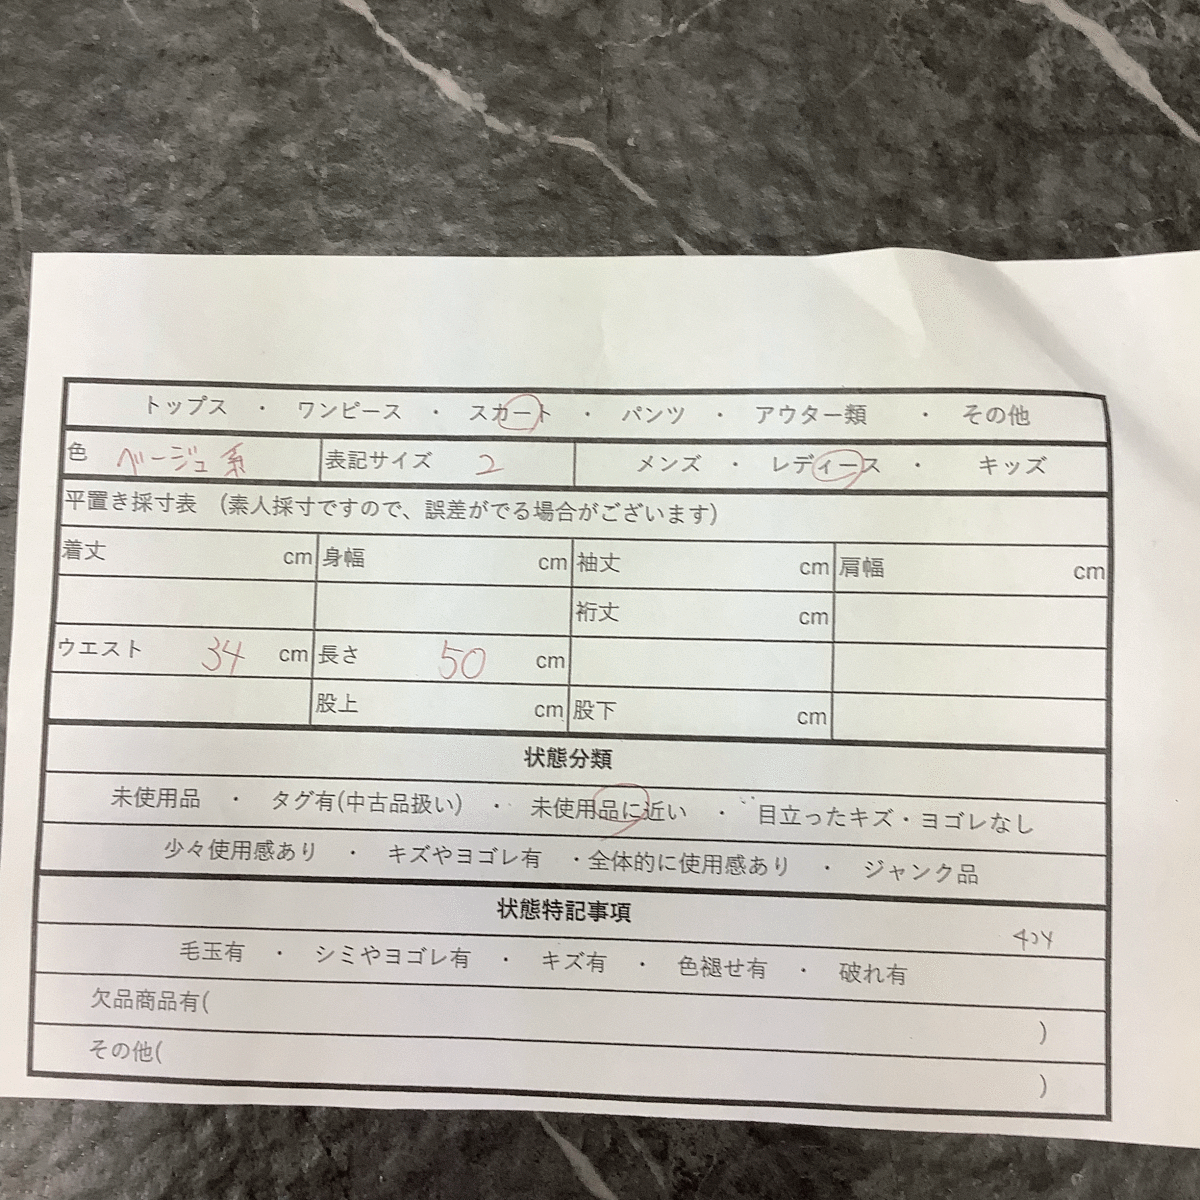 トップス ・ ワンピース ・ スカート ・ パンツ ・ アウター類 ・ その他
色 ベージュ系 表記サイズ 2 メンズ ・ レディース ・ キッズ
平置き採寸表 (素人採寸ですので、誤差がでる場合がございます)
着丈 cm 身幅 cm 袖丈 cm 肩幅 cm
裄丈 cm
ウエスト 34 cm 長さ 50 cm
股上 cm 股下 cm
状態分類
未使用品 ・ タグ有(中古品扱い) ・ 未使用品に近い ・ 目立ったキズ・ヨゴレなし
少々使用感あり ・ キズやヨゴレ有 ・全体的に使用感あり ・ ジャンク品
状態特記事項
毛玉有 ・ シミやヨゴレ有 ・ キズ有 ・ 色褪せ有 ・ 破れ有
欠品商品有( )
その他( )